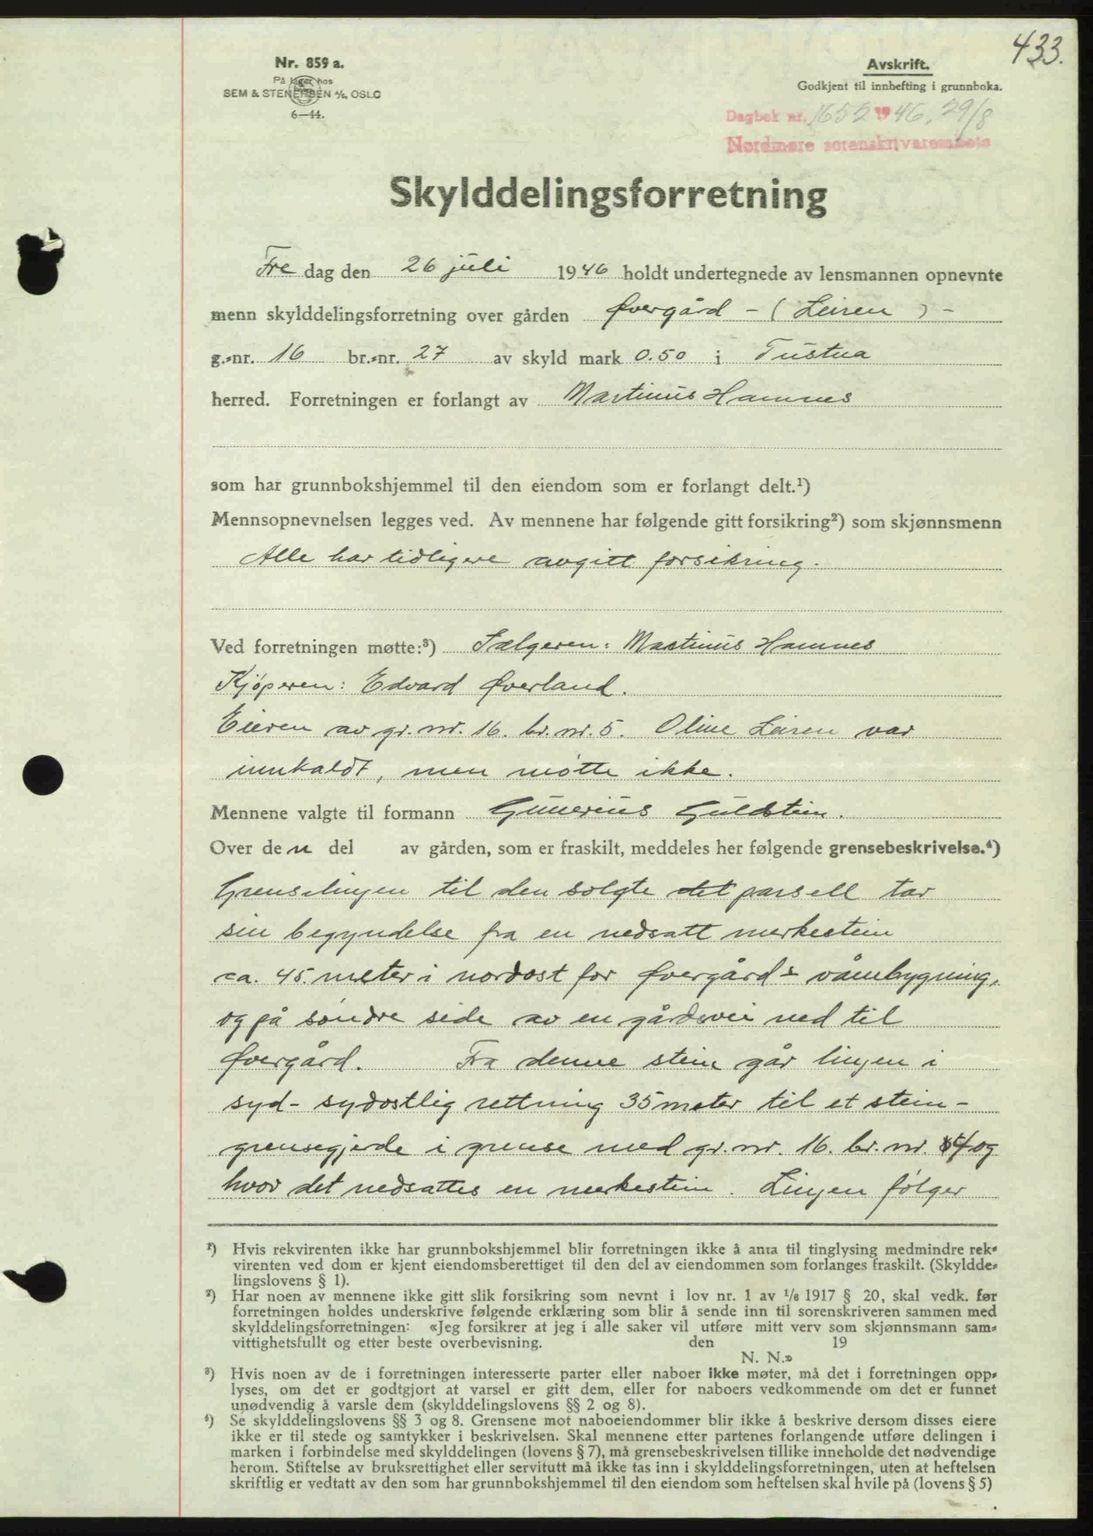 433.
Nr. 859 a.
På lager hos
SEM & STENERSEN A/S, OSLO
6—44.
Avskrift.
Godkjent til innhefting i grunnboka.
Dagbok nr. 1652 1946, 29/8
Nordmøre sorenskriverembete
Skylddelingsforretning
Fre dag den 26 juli 1946 holdt undertegnede av lensmannen opnevnte
menn skylddelingsforretning over gården Øvergård – (Leiren) –
g.-nr. 16 br.-nr. 27 av skyld mark 0.50 i Tustna
herred. Forretningen er forlangt av Martinus Hamnes
som har grunnbokshjemmel til den eiendom som er forlangt delt.¹)
Mennsopnevnelsen legges ved. Av mennene har følgende gitt forsikring²) som skjønnsmenn
Alle har tidligere avgitt forsikring.
Ved forretningen møtte:³) Sælgeren: Martinus Hamnes
Kjøperen: Edvard Øverland.
Eieren av gr. nr. 16. br. nr. 5. Oline Leiren var
innkaldt, men møtte ikke.
Mennene valgte til formann Gunerius Guldstein.
Over den del av gården, som er fraskilt, meddeles her følgende grensebeskrivelse.⁴)
Grenselinjen til den solgte det parsell tar
sin begyndelse fra en nedsatt merkestein
ca. 45. meter i nordost for Øvergårds våmbygning,
og på søndre side av en gårdsvei ned til
Øvergård. Fra denne stein går linjen i
syd- sydostlig rettning 35 meter til et stein-
grensegjerde i grense med gr. nr. 16. br. nr. 4 og
hvor det nedsattes en merkestein. Linjen følger
¹) Hvis rekvirenten ikke har grunnbokshjemmel blir forretningen ikke å anta til tinglysing medmindre rek-
virenten ved dom er kjent eiendomsberettiget til den del av eiendommen som forlanges fraskilt. (Skyldde-
lingslovens § 1).
²) Har noen av mennene ikke gitt slik forsikring som nevnt i lov nr. 1 av 1/6 1917 § 20, skal vedk. før
forretningen holdes underskrive følgende erklæring som blir å sende inn til sorenskriveren sammen med
skylddelingsforretningen: «Jeg forsikrer at jeg i alle saker vil utføre mitt verv som skjønnsmann sam-
vittighetsfullt og etter beste overbevisning. den 19
N. N.»
³) Hvis noen av de i forretningen interesserte parter eller naboer ikke møter, må det i forretningen opp-
lyses, om det er godtgjort at varsel er gitt dem, eller for naboers vedkommende om det er funnet
unødvendig å varsle dem (skylddelingslovens §§ 2 og 8).
⁴) Se skylddelingslovens §§ 3 og 8. Grensene mot naboeiendommer blir ikke å beskrive dersom disses eiere
ikke er til stede og samtykker i beskrivelsen. Skal mennene etter partenes forlangende utføre delingen i
marken i forbindelse med skylddelingen (lovens § 7), må grensebeskrivelsen tillike inneholde det nødvendige
herom. Stiftelse av bruksrettighet eller servitutt må ikke tas inn i skylddelingsforretningen, uten at heftelsen
skriftlig er vedtatt av den som har grunnbokshjemmel til den eiendom som heftelsen skal hvile på (lovens § 5)